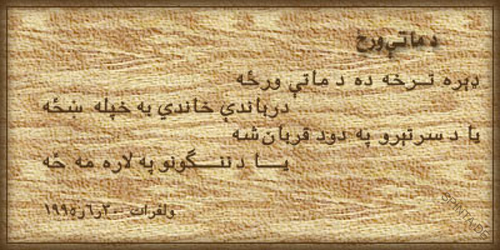 د ماتې ورځ
ډېره ترخه ده د ماتې ورځه
درباندې خاندي په خپله ښځه
يا د سرتېرو په دود قربان شه
يا د ننگونو په لاره مه ځه
ولفرات